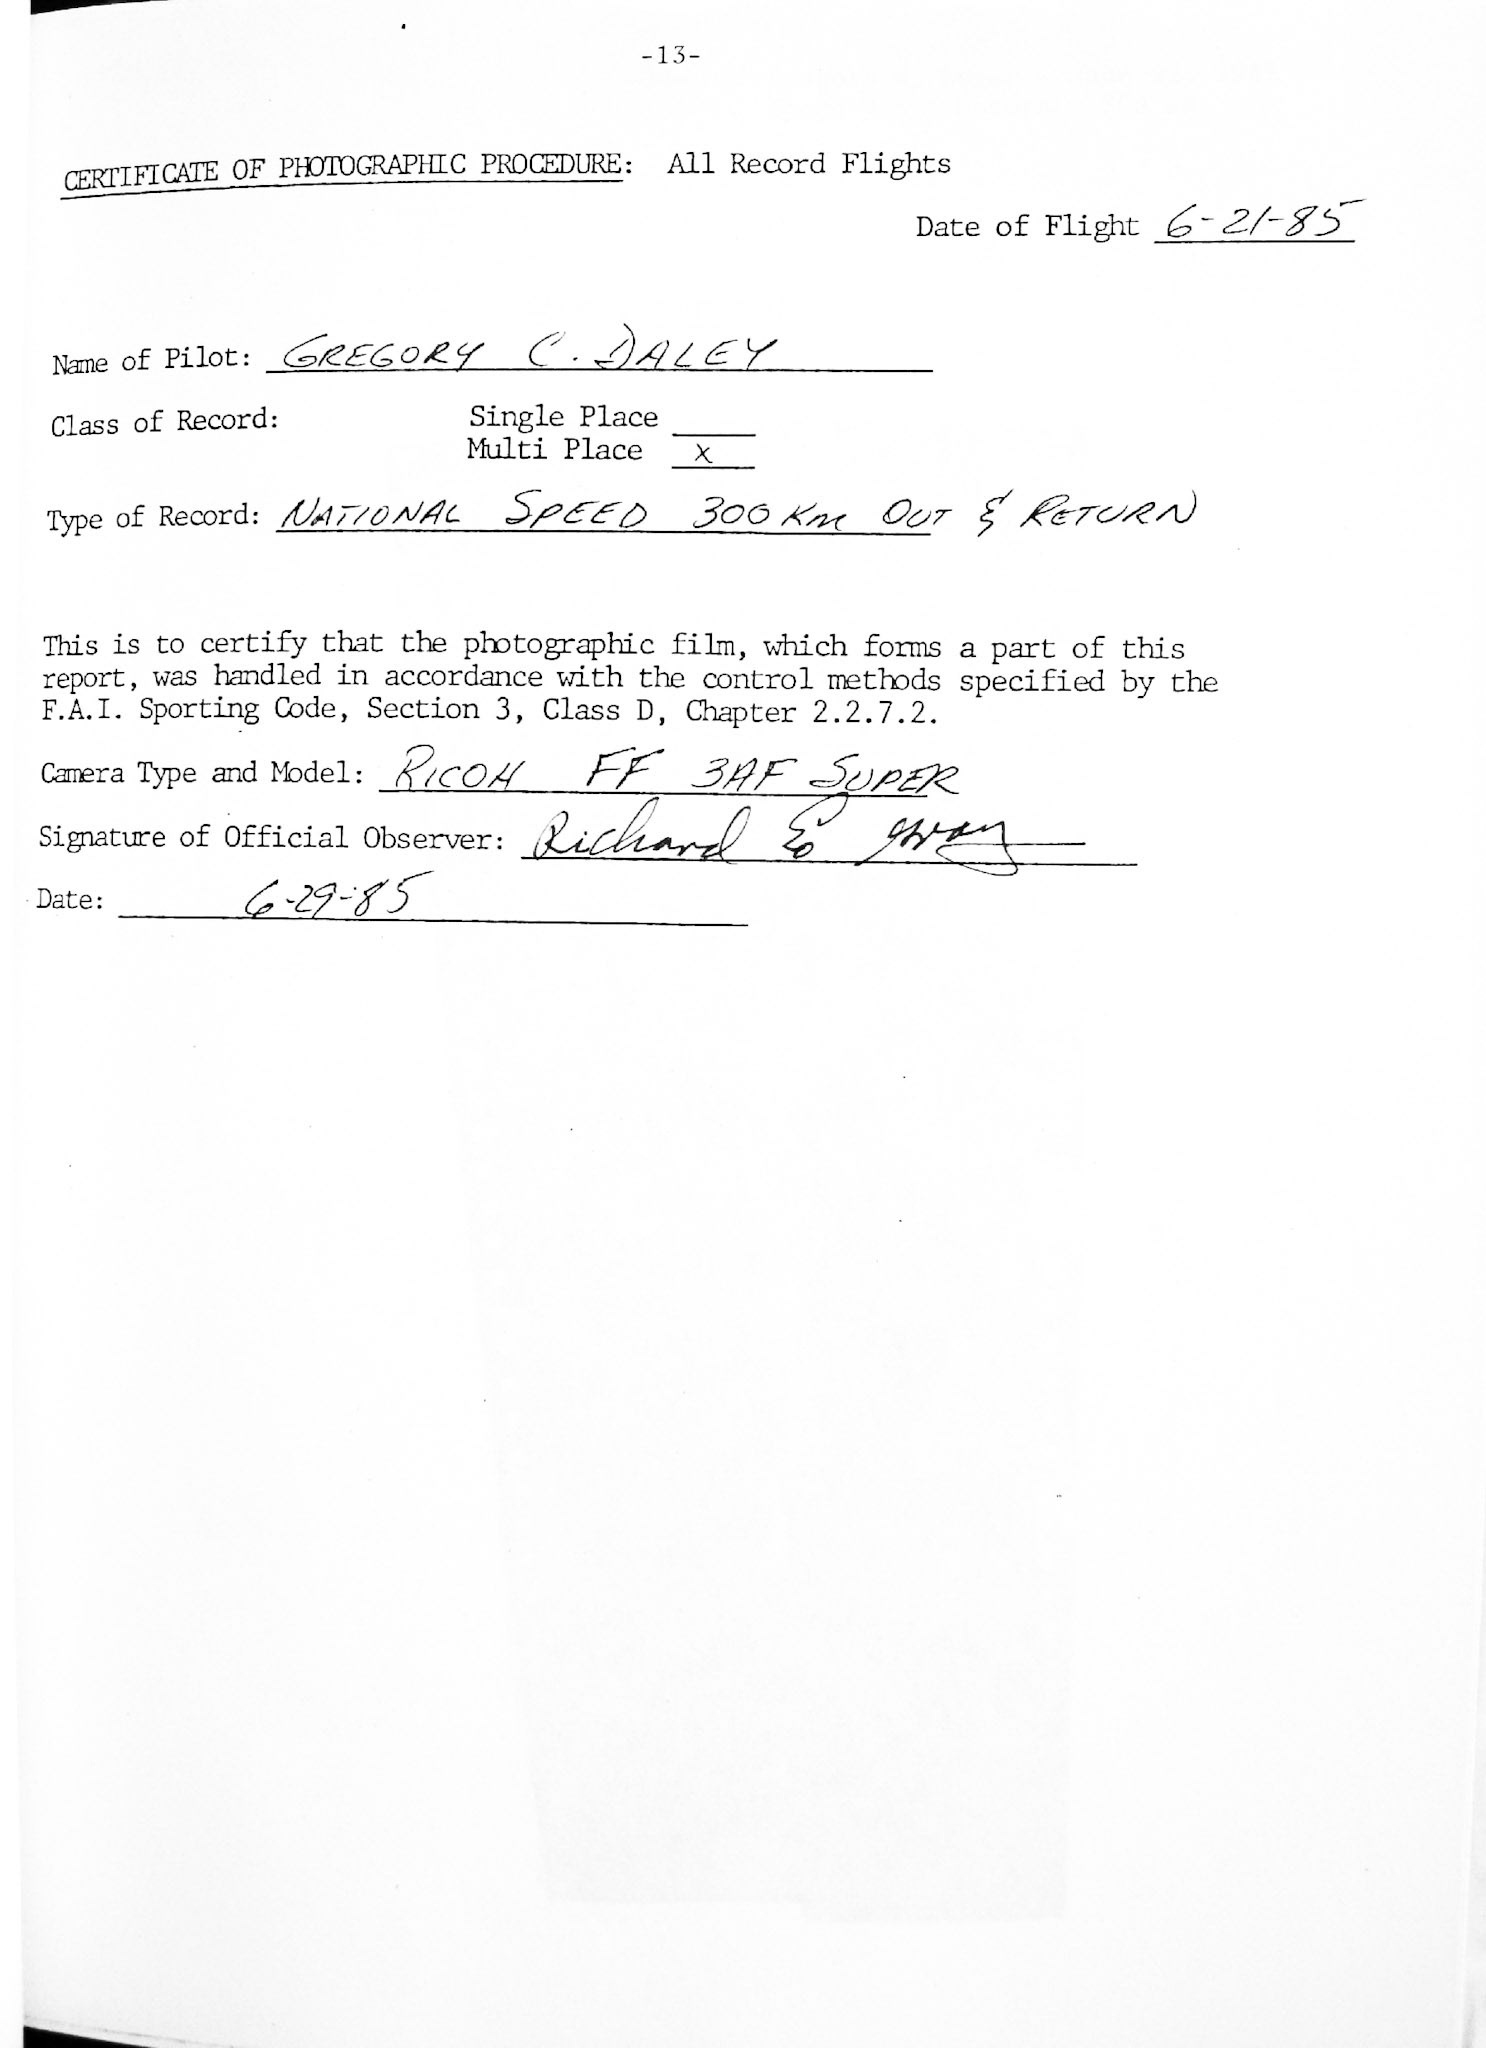 -13-
CERTIFICATE OF PHOTOGRAPHIC PROCEDURE: All Record Flights
Date of Flight 6-21-85
Name of Pilot: GREGORY C. DALEY
Class of Record: Single Place
Multi Place x
Type of Record: NATIONAL SPEED 300 KM OUT & RETURN
This is to certify that the photographic film, which forms a part of this
report, was handled in accordance with the control methods specified by the
F.A.I. Sporting Code, Section 3, Class D, Chapter 2.2.7.2.
Camera Type and Model: RICOH FF 3AF SUPER
Signature of Official Observer: Richard E Gray
Date: 6-29-85